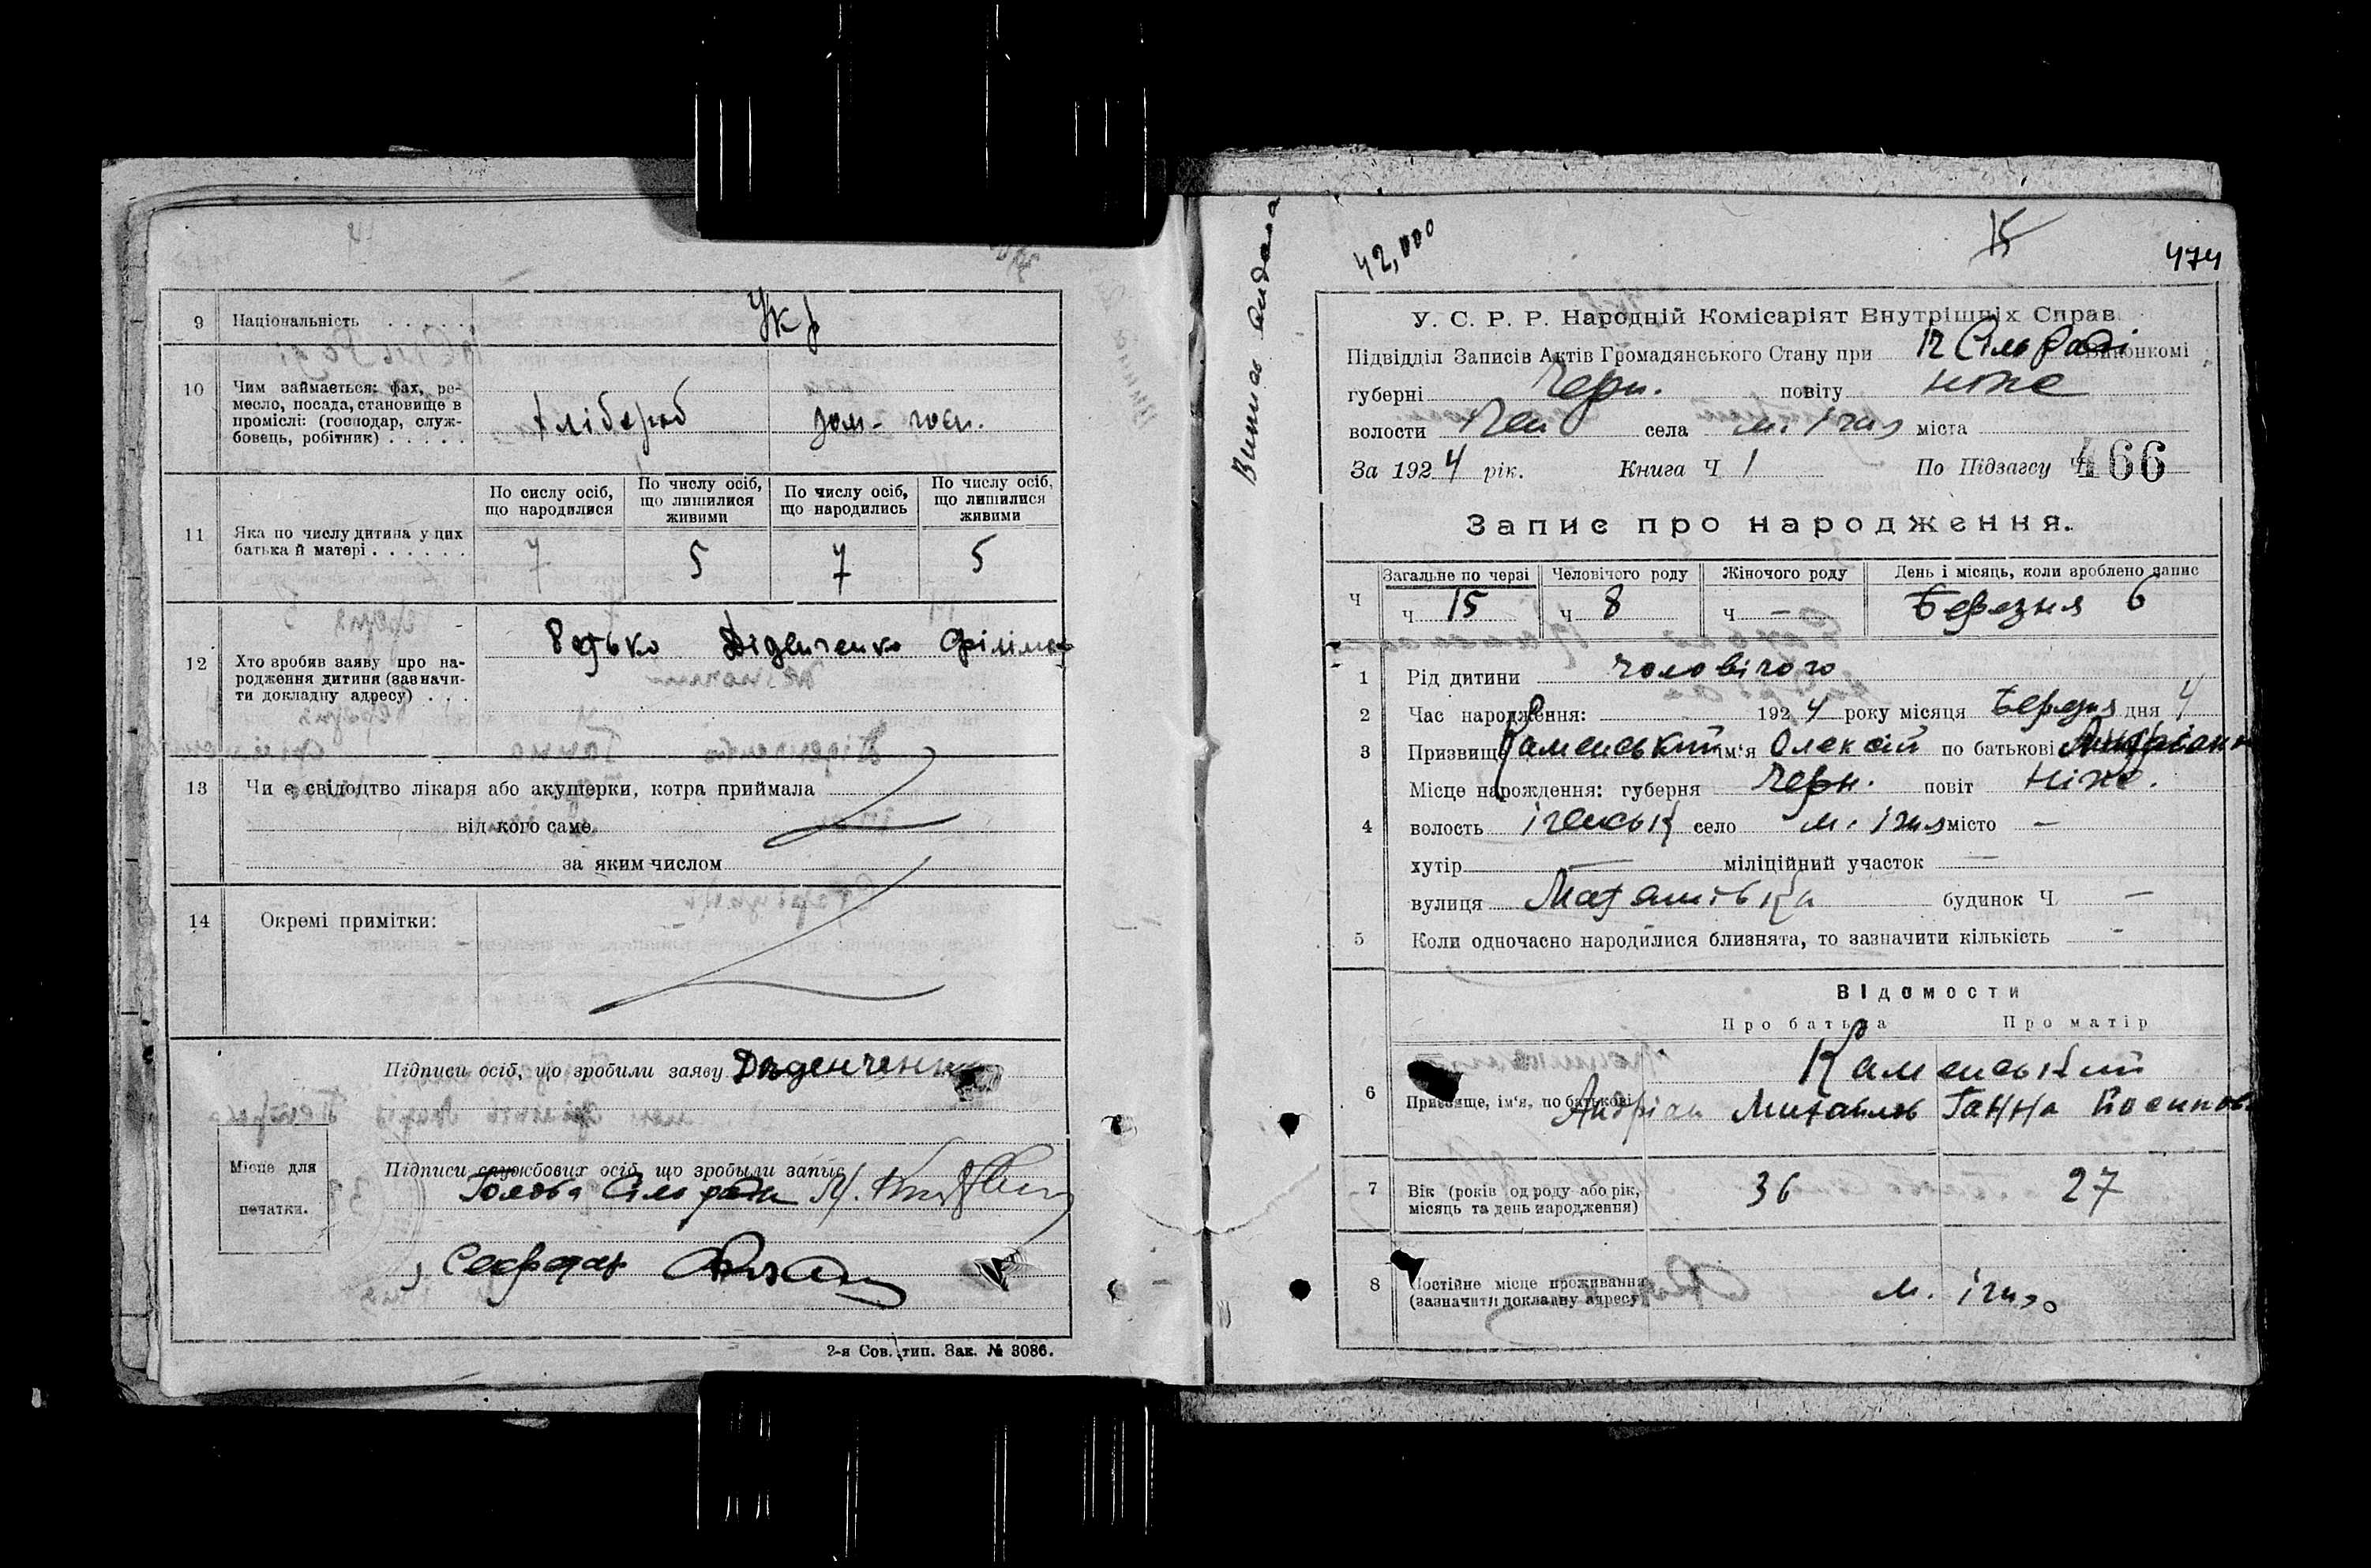 9 Національність . . . . . Укр
10 Чим займається: фах, ре-
месло, посада, становище в
проміслі: (господар, служ-
бовець, робітник) . . . . .
хлібороб дом- госп.
11 Яка по числу дитина у цих
батька й матері . . . . . .
По сислу осіб, що народилися
По числу осіб, що лишилися живими
По числу осіб, що народились
По числу осіб, що лишилися живими
7 5 7 5
12 Хто зробив заяву про на-
родження дитини (зазначи-
ти докладну адресу) . . .
Батько Діденченко Філімон
13 Чи є свідоцтво лікаря або акушерки, котра приймала
від кого саме
за яким числом
14 Окремі примітки:
Підписи осіб, що зробили заяву
Місце для
печатки.
Підписи службових осіб, що зробыли запис
Голова Сільради
Секретар
2-я Сов. тип. Зак. № 3086.
Випис видана
42,000
15
474
У. С. Р. Р. Народній Комісаріят Внутрішніх Справ
Підвідділ Записів Актів Громадянського Стану при Сільраді виконкомі
губерні Черн. повіту Ніже
волости села м. Ічня міста
За 1924 рік. Книга Ч 1 По Підзагсу Ч 466
Запис про народження.
Ч Загальне по черзі Человічого роду Жіночого роду День і місяць, коли зроблено запис
Ч 15 Ч 8 Ч — Березня 6
1 Рід дитини чоловічого
2 Час народження: 1924 року місяця Березня дня 4
3 Призвище Каменський ім'я Олексій по батькові
Місце народження: губерня Черн. повіт Ніже.
4 волость Іченськ село м. Ічня місто —
хутір — міліційний участок —
вулиця будинок Ч. —
5 Коли одночасно народилися близнята, то зазначити кількість -
Відомости
Про батька Про матір
Каменський
6 Призвище, ім'я, по батькові Андріан Михайлов Ганна
7 Вік (років од роду або рік,
місяць та день народження)
36 27
8 Постійне місце проживання
(зазначити докладну адресу)
м. Ічня